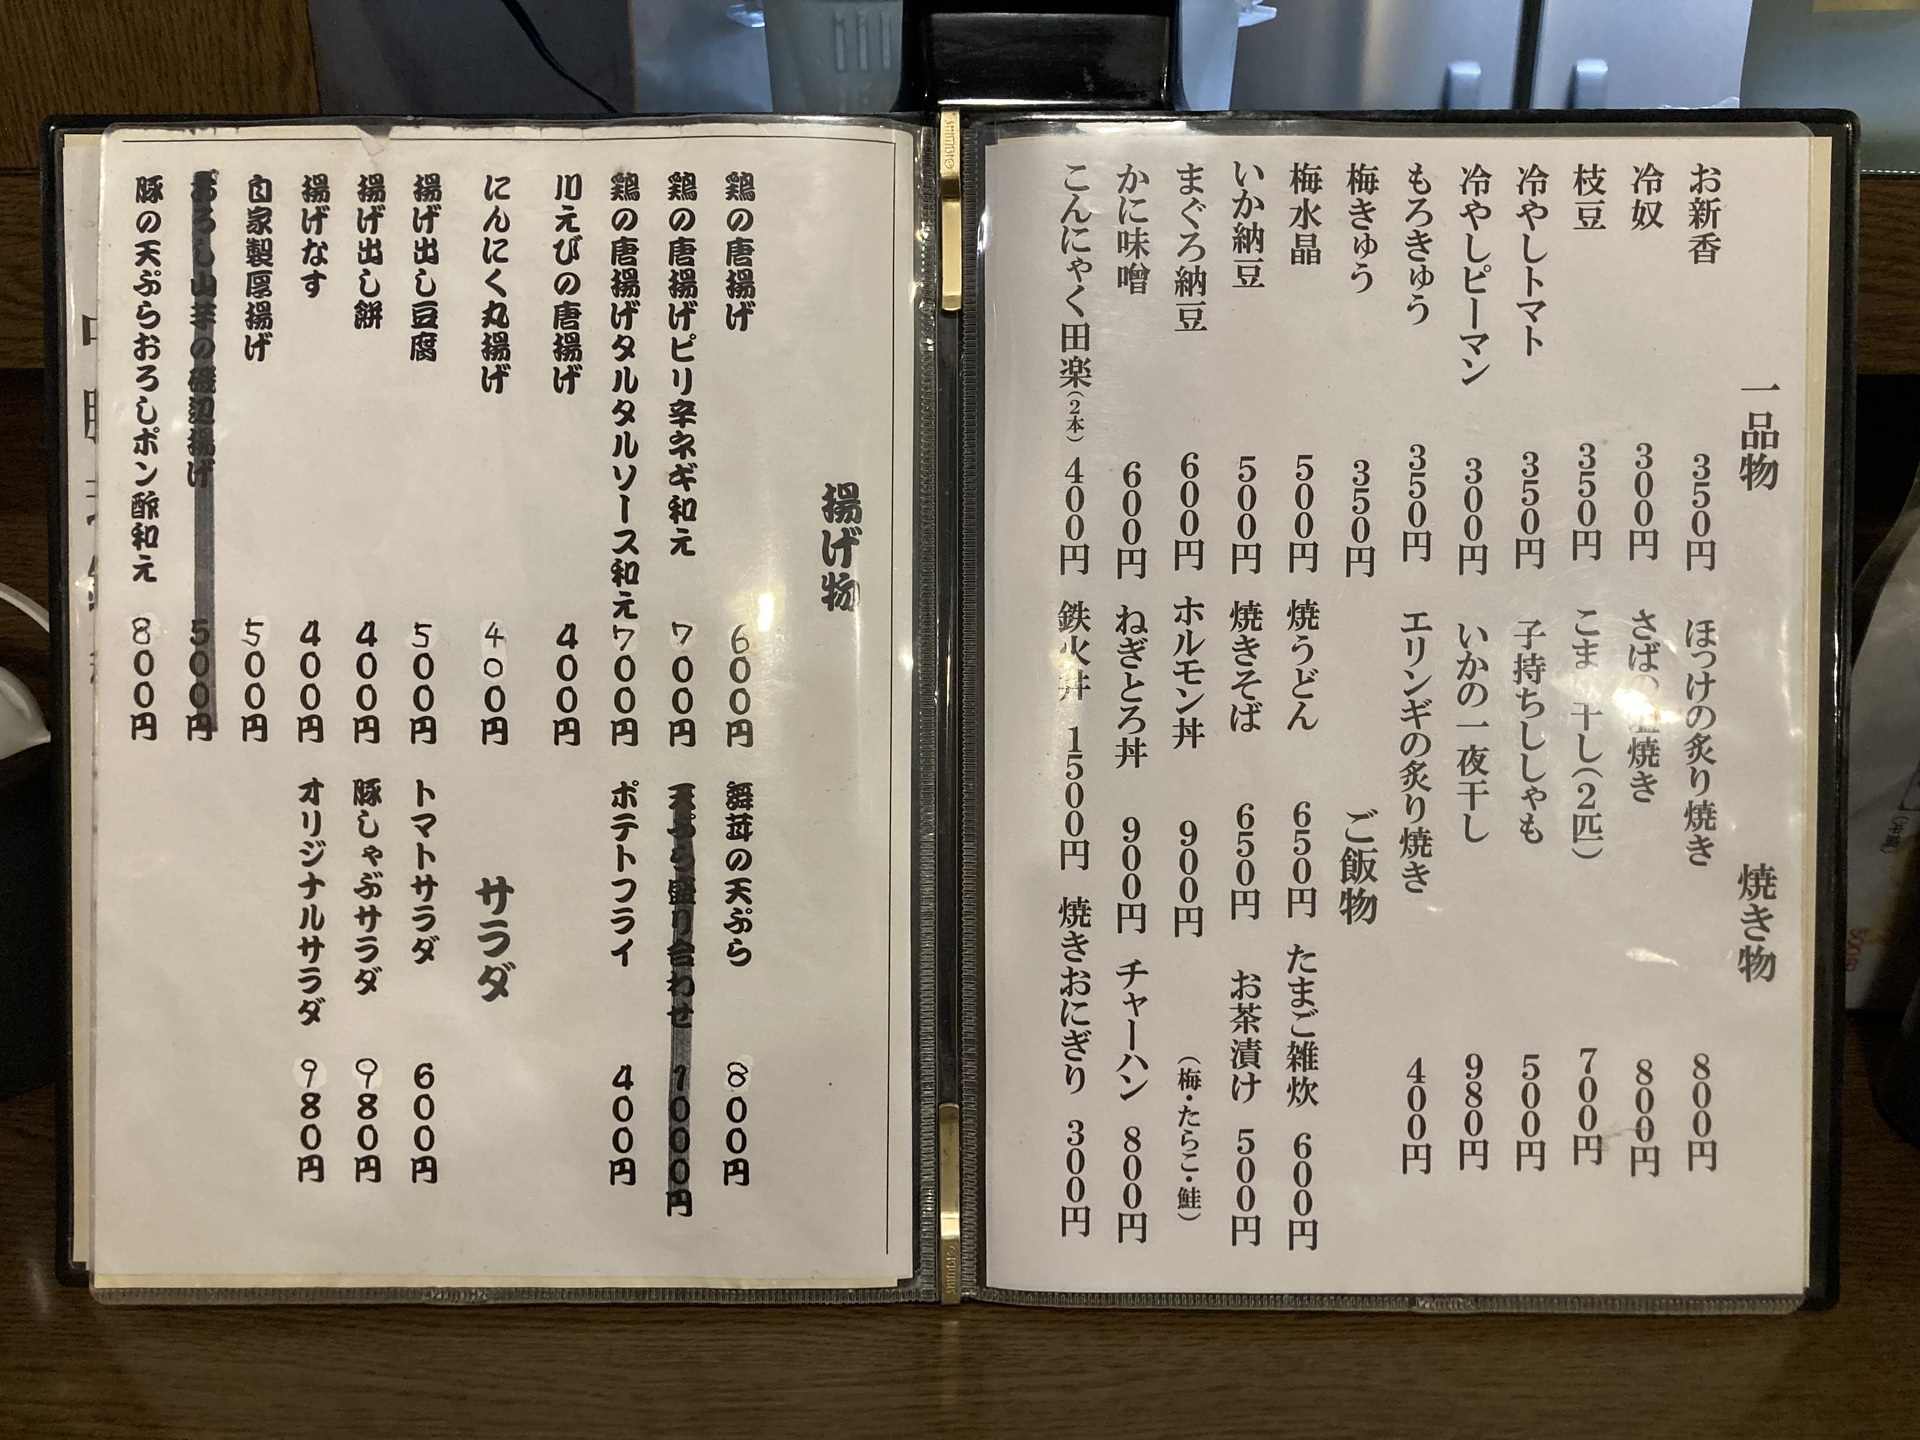 一品物
お新香 350円
冷奴 300円
枝豆 350円
冷やしトマト 350円
冷やしピーマン 300円
もろきゅう 350円
梅きゅう 350円
梅水晶 500円
いか納豆 500円
まぐろ納豆 600円
かに味噌 600円
こんにゃく田楽(2本) 400円
焼き物
ほっけの炙り焼き 800円
さばの塩焼き 800円
こま 干し(2匹) 700円
子持ちししゃも 500円
いかの一夜干し 980円
エリンギの炙り焼き 400円
ご飯物
焼うどん 650円
焼きそば 650円
ホルモン丼 900円
ねぎとろ丼 900円
鉄火丼 1500円
たまご雑炊 600円
お茶漬け 500円
(梅・たらこ・鮭)
チャーハン 800円
焼きおにぎり 300円
揚げ物
鶏の唐揚げ 600円
鶏の唐揚げピリ辛ネギ和え 700円
鶏の唐揚げタルタルソース和え 700円
川えびの唐揚げ 400円
にんにく丸揚げ 400円
揚げ出し豆腐 500円
揚げ出し餅 400円
揚げなす 400円
自家製厚揚げ 500円
おろし山芋の磯辺揚げ 500円
豚の天ぷらおろしポン酢和え 800円
舞茸の天ぷら 800円
天ぷら盛り合わせ 1000円
ポテトフライ 400円
サラダ
トマトサラダ 600円
豚しゃぶサラダ 980円
オリジナルサラダ 980円